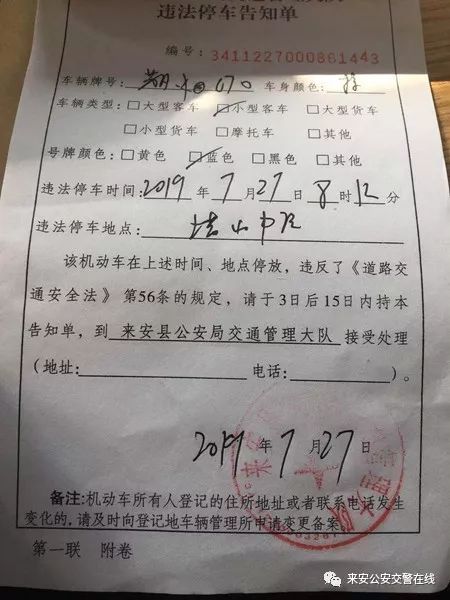 违法停车告知单
编号:3411227000861443
车辆牌号: 车身颜色:
车辆类型:□大型客车 □小型客车 □大型货车
□小型货车 □摩托车 □其他
号牌颜色:□黄色 □蓝色 □黑色 □其他
违法停车时间:2019年7月27日8时12分
违法停车地点:
该机动车在上述时间、地点停放,违反了《道路交
通安全法》第56条的规定,请于3日后15日内持本
告知单,到 来安县公安局交通管理大队 接受处理
(地址: 电话: )。
2019年7月27日
备注:机动车所有人登记的住所地址或者联系电话发生
变化的,请及时向登记地车辆管理所申请变更备案。
第一联 附卷
来安公安交警在线